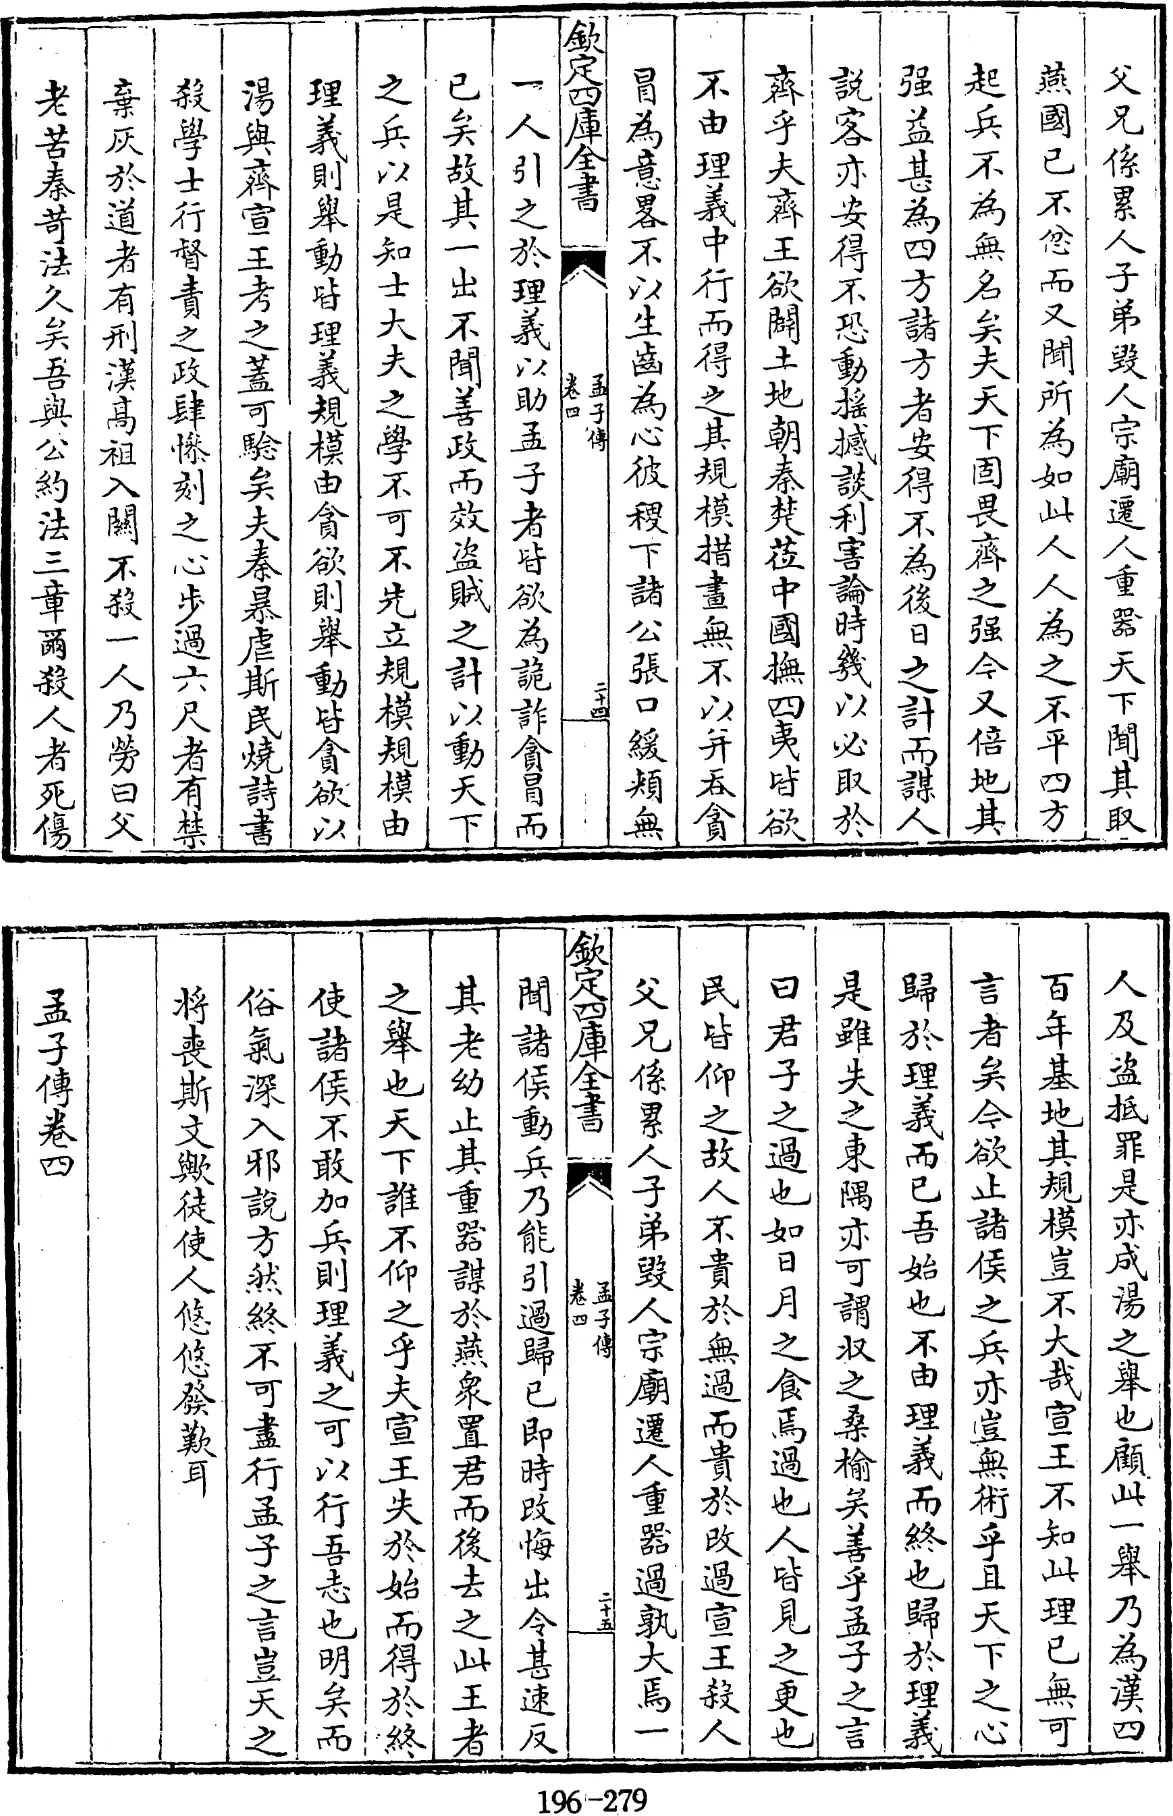 父兄係累人子弟毀人宗廟遷人重器天下聞其取
燕國已不忿而又聞所為如此人人為之不平四方
起兵不為無名矣夫天下固畏齊之强今又倍地其
强益甚為四方諸方者安得不為後日之計而謀人
說客亦安得不恐動摇撼談利害論時幾以必取於
齊乎夫齊王欲闢土地朝秦楚莅中國撫四夷皆欲
不由理義中行而得之其規模措畫無不以并吞貪
冒為意畧不以生齒為心彼稷下諸公張口緩頰無
欽定四庫全書
孟子傳
卷四
二十四
一人引之於理義以助孟子者皆欲為詭詐貪冒而
已矣故其一出不聞善政而效盗賊之計以動天下
之兵以是知士大夫之學不可不先立規模規模由
理義則舉動皆理義規模由貪欲則舉動皆貪欲以
湯與齊宣王考之蓋可驗矣夫秦暴虐斯民燒詩書
殺學士行督責之政肆慘刻之心步過六尺者有禁
棄灰於道者有刑漢高祖入關不殺一人乃勞曰父
老苦秦苛法久矣吾與公約法三章爾殺人者死傷
人及盗抵罪是亦成湯之舉也顧此一舉乃為漢四
百年基地其規模豈不大哉宣王不知此理已無可
言者矣今欲止諸侯之兵亦豈無術乎且天下之心
歸於理義而已吾始也不由理義而終也歸於理義
是雖失之東隅亦可謂収之桑榆矣善乎孟子之言
曰君子之過也如日月之食焉過也人皆見之更也
民皆仰之故人不貴於無過而貴於改過宣王殺人
父兄係累人子弟毀人宗廟遷人重器過孰大焉一
欽定四庫全書
孟子傳
卷四
二十五
聞諸侯動兵乃能引過歸已即時改悔出令甚速反
其老幼止其重器謀於燕衆置君而後去之此王者
之舉也天下誰不仰之乎夫宣王失於始而得於終
使諸侯不敢加兵則理義之可以行吾志也明矣而
俗氣深入邪說方然終不可盡行孟子之言豈天之
將喪斯文歟徒使人悠悠發歎耳
孟子傳卷四
196-279